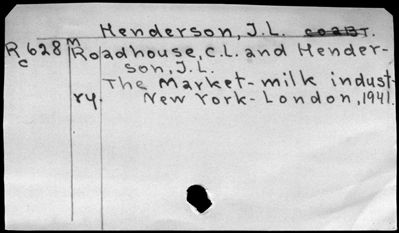 Henderson, J.L. coaut.
R 628 M Roadhouse, C.L. and Hender-
c son, J.L.
The Market-milk indust-
ry. New York-London, 1941.